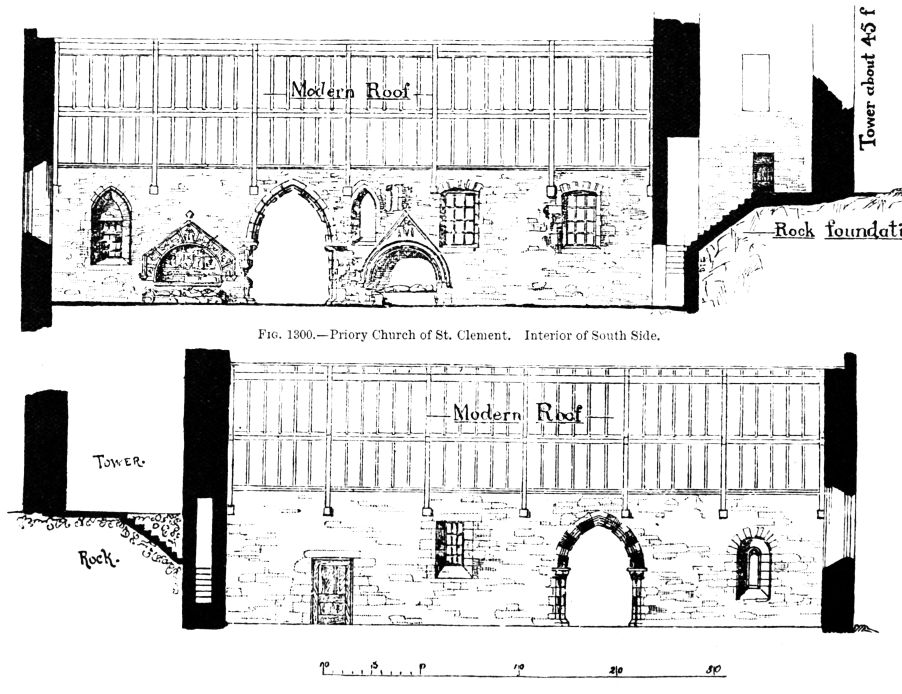 Modern Roof
Tower about 45 f
Rock foundati
FIG. 1300.—Priory Church of St. Clement. Interior of South Side.
Modern Roof
TOWER.
Rock.
10 5 0 10 20 30